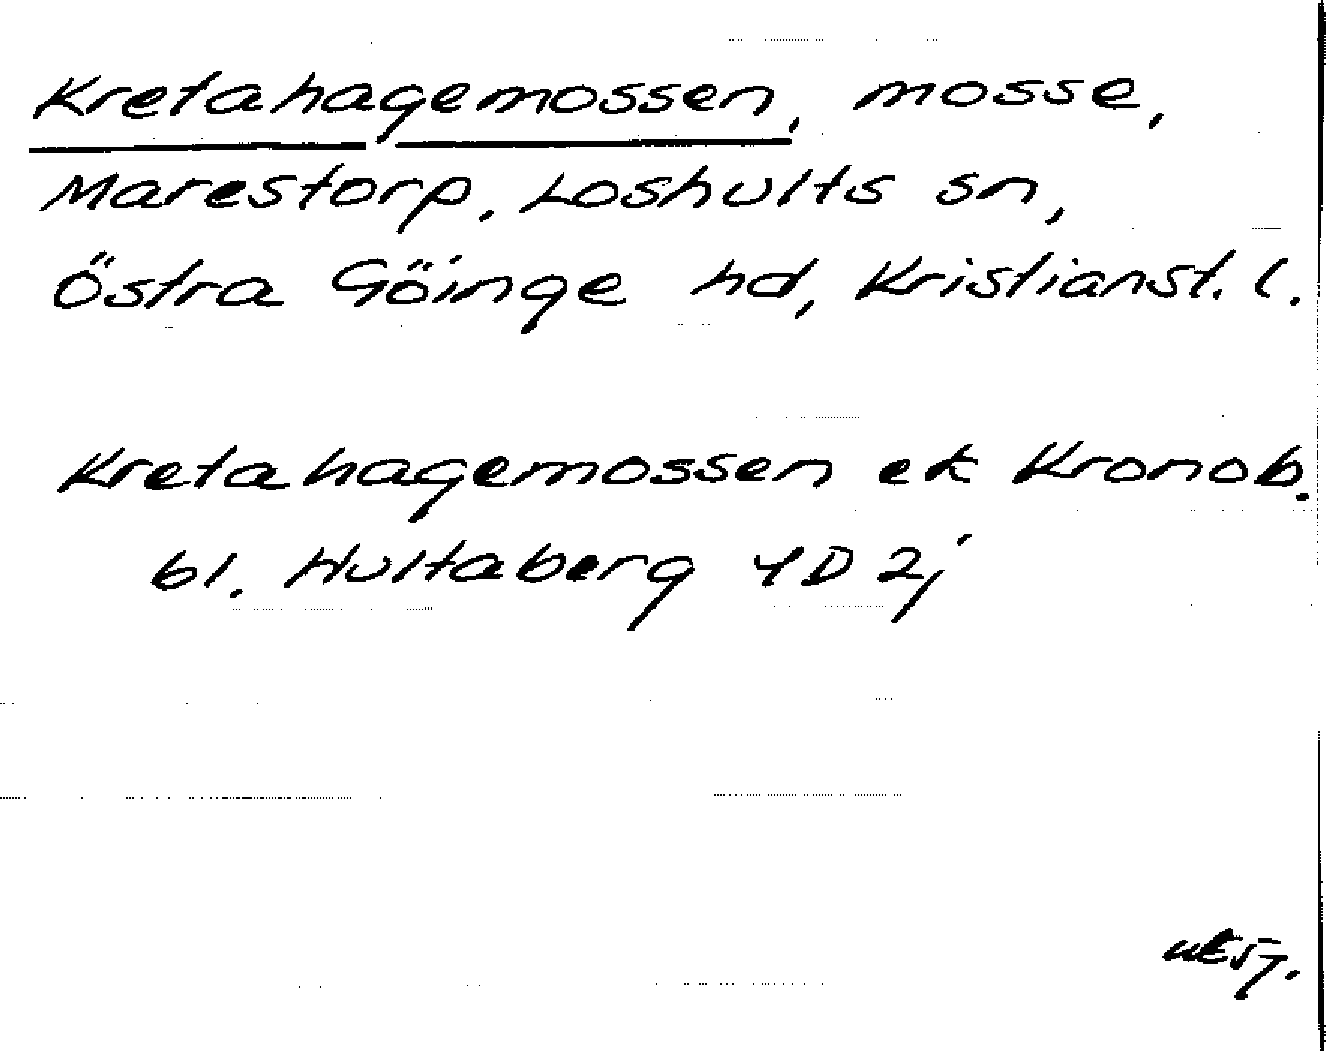 Kretahagemossen, mosse,
Marestorp, Loshults sn,
Östra Göinge hd, Kristianst. l.
Kretahagemossen ek Kronob.
bl. Hultaberg 4D 2j